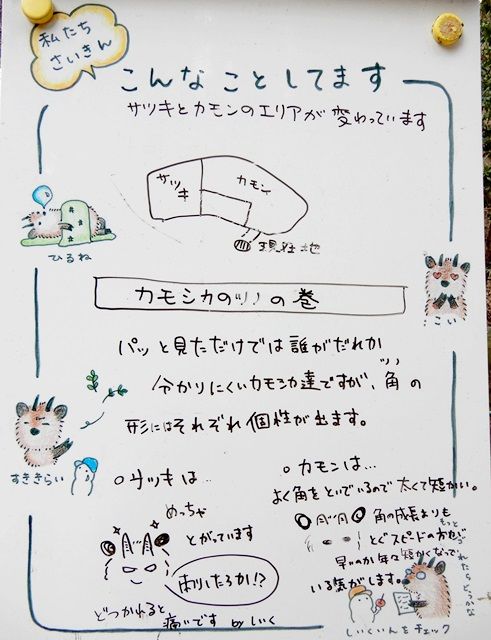 私たち
さいきん
こんなことしてます
サツキとカモンのエリアが変わっています
サツキ
カモン
現在地
ひるね
こい
カモシカのツノの巻
パッと見ただけでは誰がだれか
分かりにくいカモシカ達ですが、角の
ツノ
形にはそれぞれ個性が出ます。
すききらい
○サツキは…
めっちゃ
とがっています
刺したろか!?
どつかれると
痛いです byしいく
○カモンは…
よく角をといでいるので太くて短かい。
角の成長よりも
とぐスピードの方が
早いのか年々短かくなって
いる気がします。
しいくいんをチェック